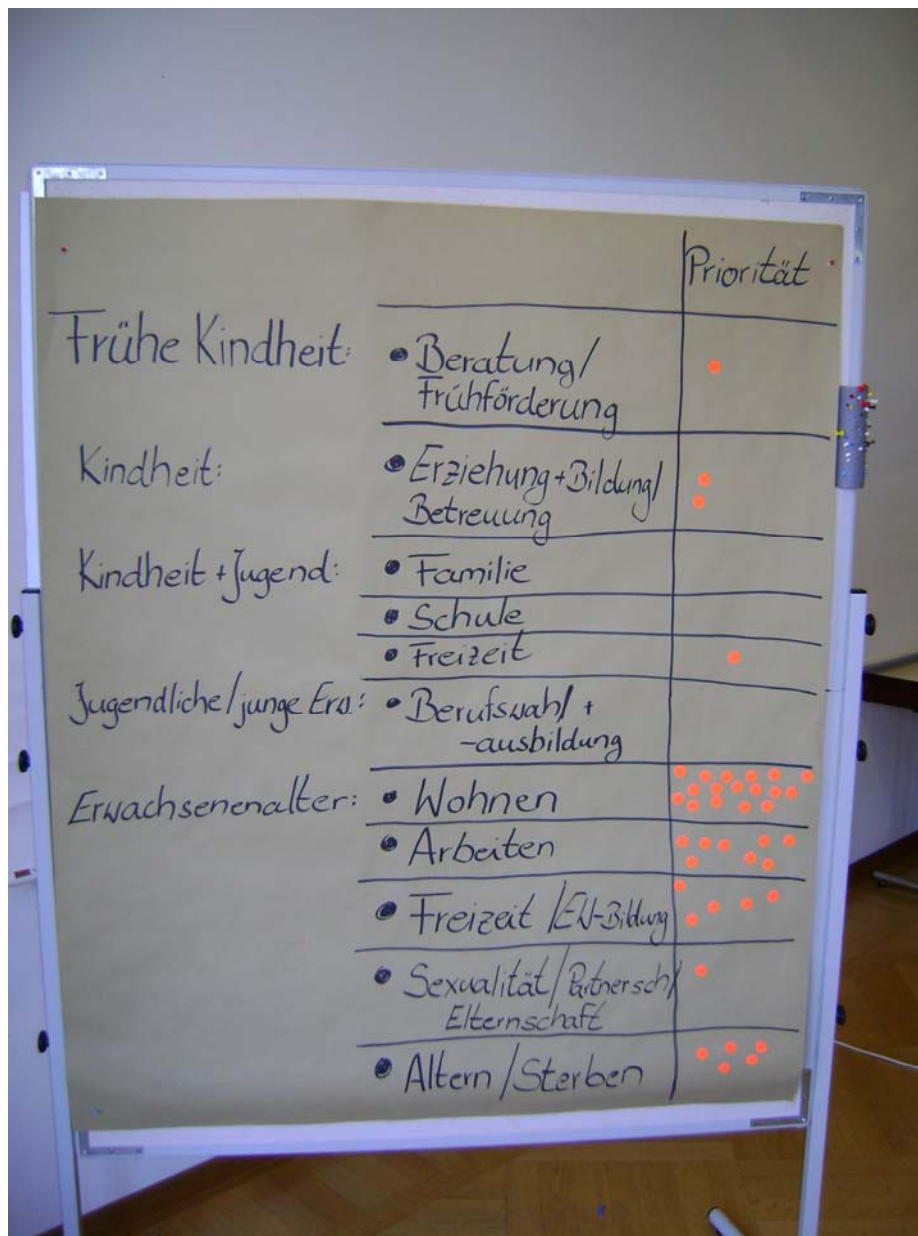 Priorität
Frühe Kindheit:
• Beratung/
Frühförderung
Kindheit:
• Erziehung+Bildung/
Betreuung
Kindheit + Jugend:
• Familie
• Schule
• Freizeit
Jugendliche/junge Erw.:
• Berufswahl +
-ausbildung
Erwachsenenalter:
• Wohnen
• Arbeiten
• Freizeit /EW-Bildung
• Sexualität/Partnersch/
Elternschaft
• Altern/Sterben